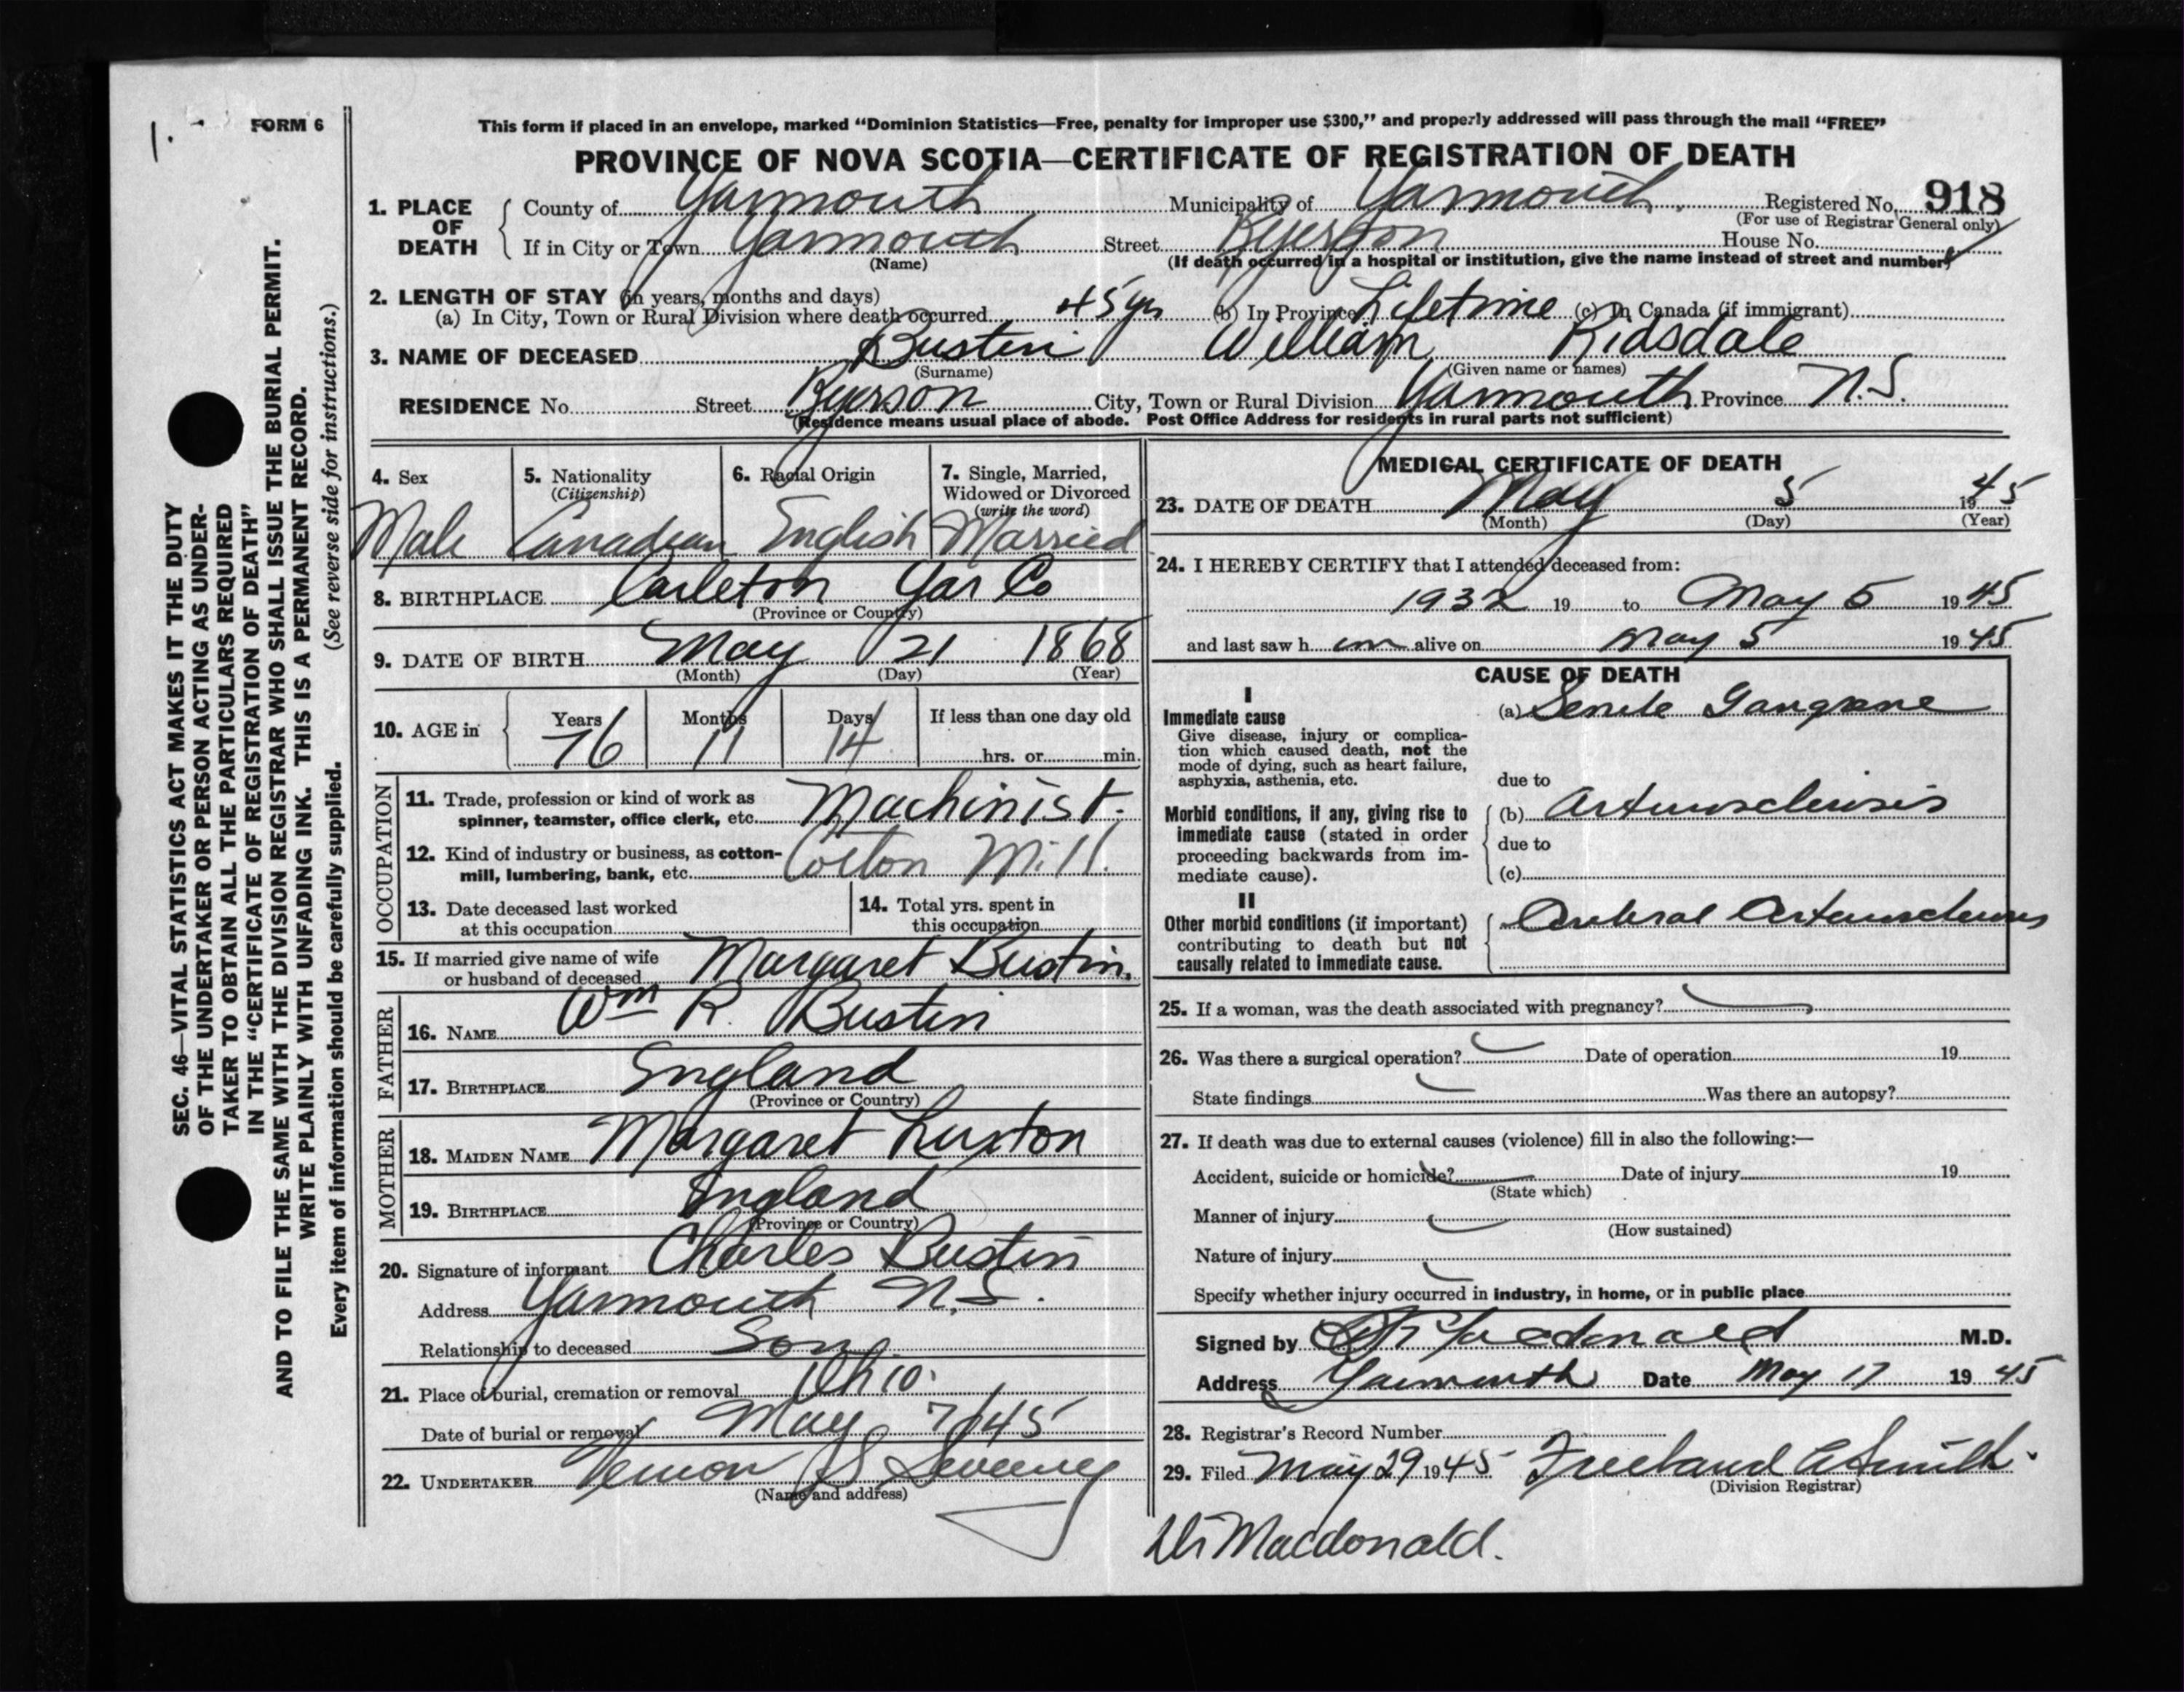 1.
FORM 6
This form if placed in an envelope, marked “Dominion Statistics—Free, penalty for improper use $300,” and properly addressed will pass through the mail “FREE”
PROVINCE OF NOVA SCOTIA—CERTIFICATE OF REGISTRATION OF DEATH
1. PLACE OF DEATH County of Yarmouth Municipality of Yarmouth. Registered No. 918
(For use of Registrar General only)
If in City or Town Yarmouth Street Ryerson House No.
(Name) (If death occurred in a hospital or institution, give the name instead of street and number)
2. LENGTH OF STAY (in years, months and days)
(a) In City, Town or Rural Division where death occurred 45 yrs (b) In Province Lifetime (c) In Canada (if immigrant)
3. NAME OF DECEASED Bustin William Ridsdale
(Surname) (Given name or names)
RESIDENCE No. Street Ryerson City, Town or Rural Division Yarmouth Province N.S.
(Residence means usual place of abode. Post Office Address for residents in rural parts not sufficient)
4. Sex Male
5. Nationality (Citizenship) Canadian
6. Racial Origin English
7. Single, Married, Widowed or Divorced (write the word) Married
8. BIRTHPLACE Carleton Yar Co
(Province or County)
9. DATE OF BIRTH May 21 1868
(Month) (Day) (Year)
10. AGE in Years 76 Months 11 Days 14 If less than one day old
hrs. or min.
OCCUPATION
11. Trade, profession or kind of work as
spinner, teamster, office clerk, etc. Machinist.
12. Kind of industry or business, as cotton-
mill, lumbering, bank, etc. Cotton Mill.
13. Date deceased last worked
at this occupation
14. Total yrs. spent in
this occupation
15. If married give name of wife
or husband of deceased Margaret Bustin.
FATHER
16. NAME Wm R. Bustin
17. BIRTHPLACE England
(Province or Country)
MOTHER
18. MAIDEN NAME Margaret Luxton
19. BIRTHPLACE England
(Province or Country)
20. Signature of informant Charles Bustin
Address Yarmouth N.S.
Relationship to deceased Son
21. Place of burial, cremation or removal Ohio.
Date of burial or removal May 7/45
22. UNDERTAKER Vernon S Sweeny
(Name and address)
MEDICAL CERTIFICATE OF DEATH
23. DATE OF DEATH May 5 1945
(Month) (Day) (Year)
24. I HEREBY CERTIFY that I attended deceased from:
1932 19 to May 5 1945
and last saw h im alive on May 5 1945
CAUSE OF DEATH
I
Immediate cause (a) Senile Gangrene
Give disease, injury or complica-
tion which caused death, not the
mode of dying, such as heart failure,
asphyxia, asthenia, etc.
due to
Morbid conditions, if any, giving rise to (b) Arteriosclerosis
immediate cause (stated in order
proceeding backwards from im-
mediate cause).
due to
(c)
II
Other morbid conditions (if important) Cerebral Arteriosclerosis
contributing to death but not
causally related to immediate cause.
25. If a woman, was the death associated with pregnancy?
26. Was there a surgical operation? Date of operation 19
State findings Was there an autopsy?
27. If death was due to external causes (violence) fill in also the following:—
Accident, suicide or homicide? Date of injury 19
(State which)
Manner of injury
(How sustained)
Nature of injury
Specify whether injury occurred in industry, in home, or in public place
Signed by Macdonald M.D.
Address Yarmouth Date May 17 1945
28. Registrar's Record Number
29. Filed May 29 1945 Freeland A Smith.
(Division Registrar)
Dr Macdonald.
SEC. 46—VITAL STATISTICS ACT MAKES IT THE DUTY
OF THE UNDERTAKER OR PERSON ACTING AS UNDER-
TAKER TO OBTAIN ALL THE PARTICULARS REQUIRED
IN THE “CERTIFICATE OF REGISTRATION OF DEATH”
AND TO FILE THE SAME WITH THE DIVISION REGISTRAR WHO SHALL ISSUE THE BURIAL PERMIT.
WRITE PLAINLY WITH UNFADING INK. THIS IS A PERMANENT RECORD.
Every item of information should be carefully supplied. (See reverse side for instructions.)